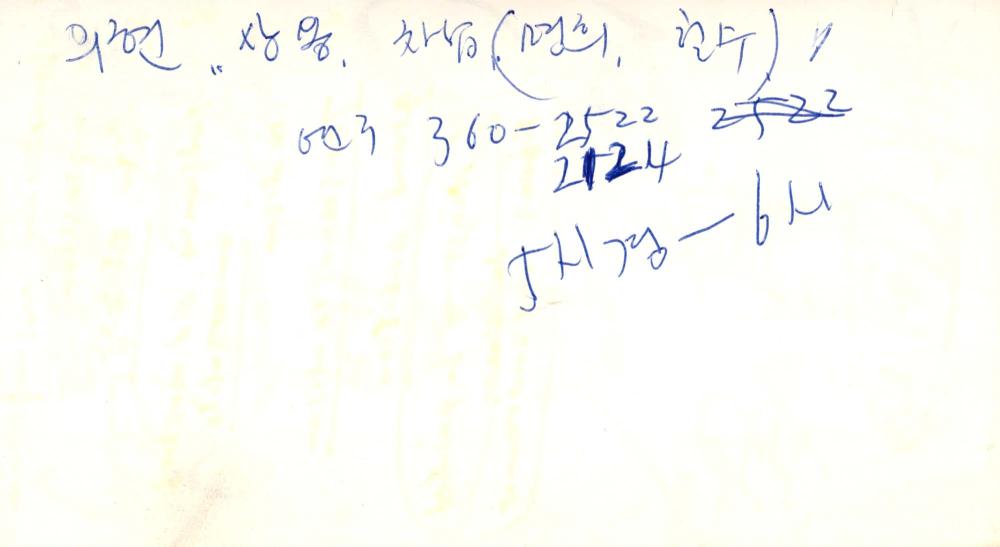 의현, 상용, 차남(명희, 현수)
연구 360-2522 2522
2124
5시경 - 6시